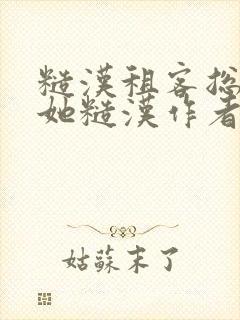 糙漢租客總
她糙漢作者
姑蘇末了